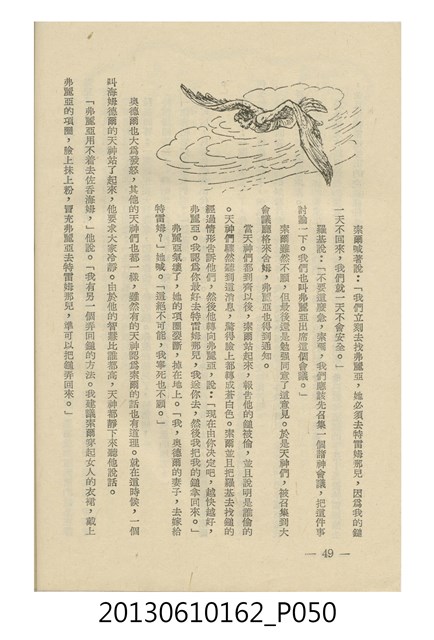 索爾喊著說：「我們立刻去找弗麗亞，她必須去特雷姆那兒，因爲我的鎚
一天不回來，我們就一天不會安全。」
羅基說：「不要這麼急，索爾，我們應該先召集一個諸神會議，把這件事
討論一下。我們也叫弗麗亞出席這個會議。」
索爾雖然不願，但最後還是勉强同意了這意見。於是天神們，被召集到大
會議廳格來舍姆，弗麗亞也得到通知。
當天神們都到齊以後，索爾站起來，報告他的鎚被偷，並且說明是誰偷的
。天神們驟然聽到這消息，驚得臉上都轉成蒼白色。索爾並且把羅基去找鎚的
經過情形告訴他們，然後他轉向弗麗亞，說：「現在由你决定吧，越快越好，
弗麗亞。我認爲你最好去特雷姆那兒，我送你去，然後我把我的鎚拿回來。」
弗麗亞氣壞了，她的項圈裂斷，掉在地上。「我，奧德爾的妻子，去嫁給
特雷姆？」她喊。「這絕不可能，我寧死也不願。」
奥德爾也大爲發怒，其他的天神們也都一樣，雖然有的天神認爲索爾的話也有道理。就在這時候，一個
叫海姆德爾的天神站了起來，他要求大家冷靜。由於他的智慧比誰都高，天神都靜下來聽他說話。
「弗麗亞用不着去佐香海姆，」他說。「我有另一個弄回鎚的方法。我建議索爾穿起女人的衣裙，戴上
弗麗亞的項圈，臉上抹上粉，冒充弗麗亞去特雷姆那兒，準可以把鎚弄回來。」
— 49 —
20130610162_P050